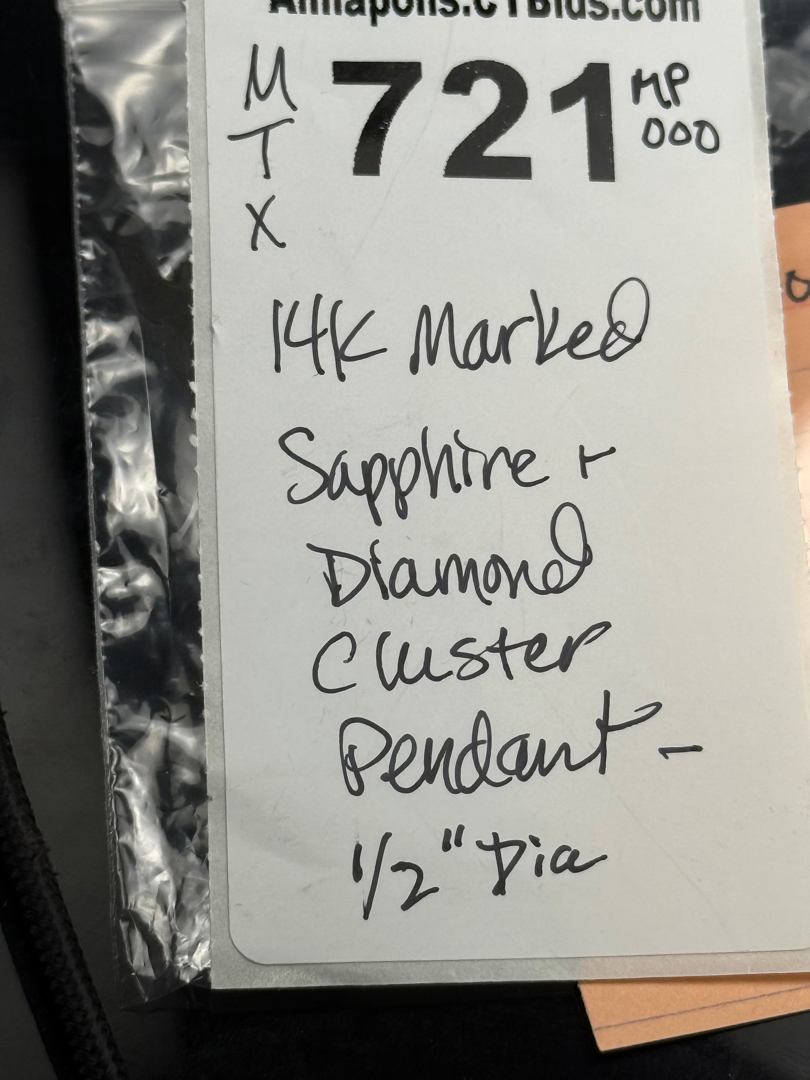 Annapolis.CTBids.com
M
T
X
721
MP
000
14K Marked
Sapphire +
Diamond
Cluster
Pendant -
1/2" Dia